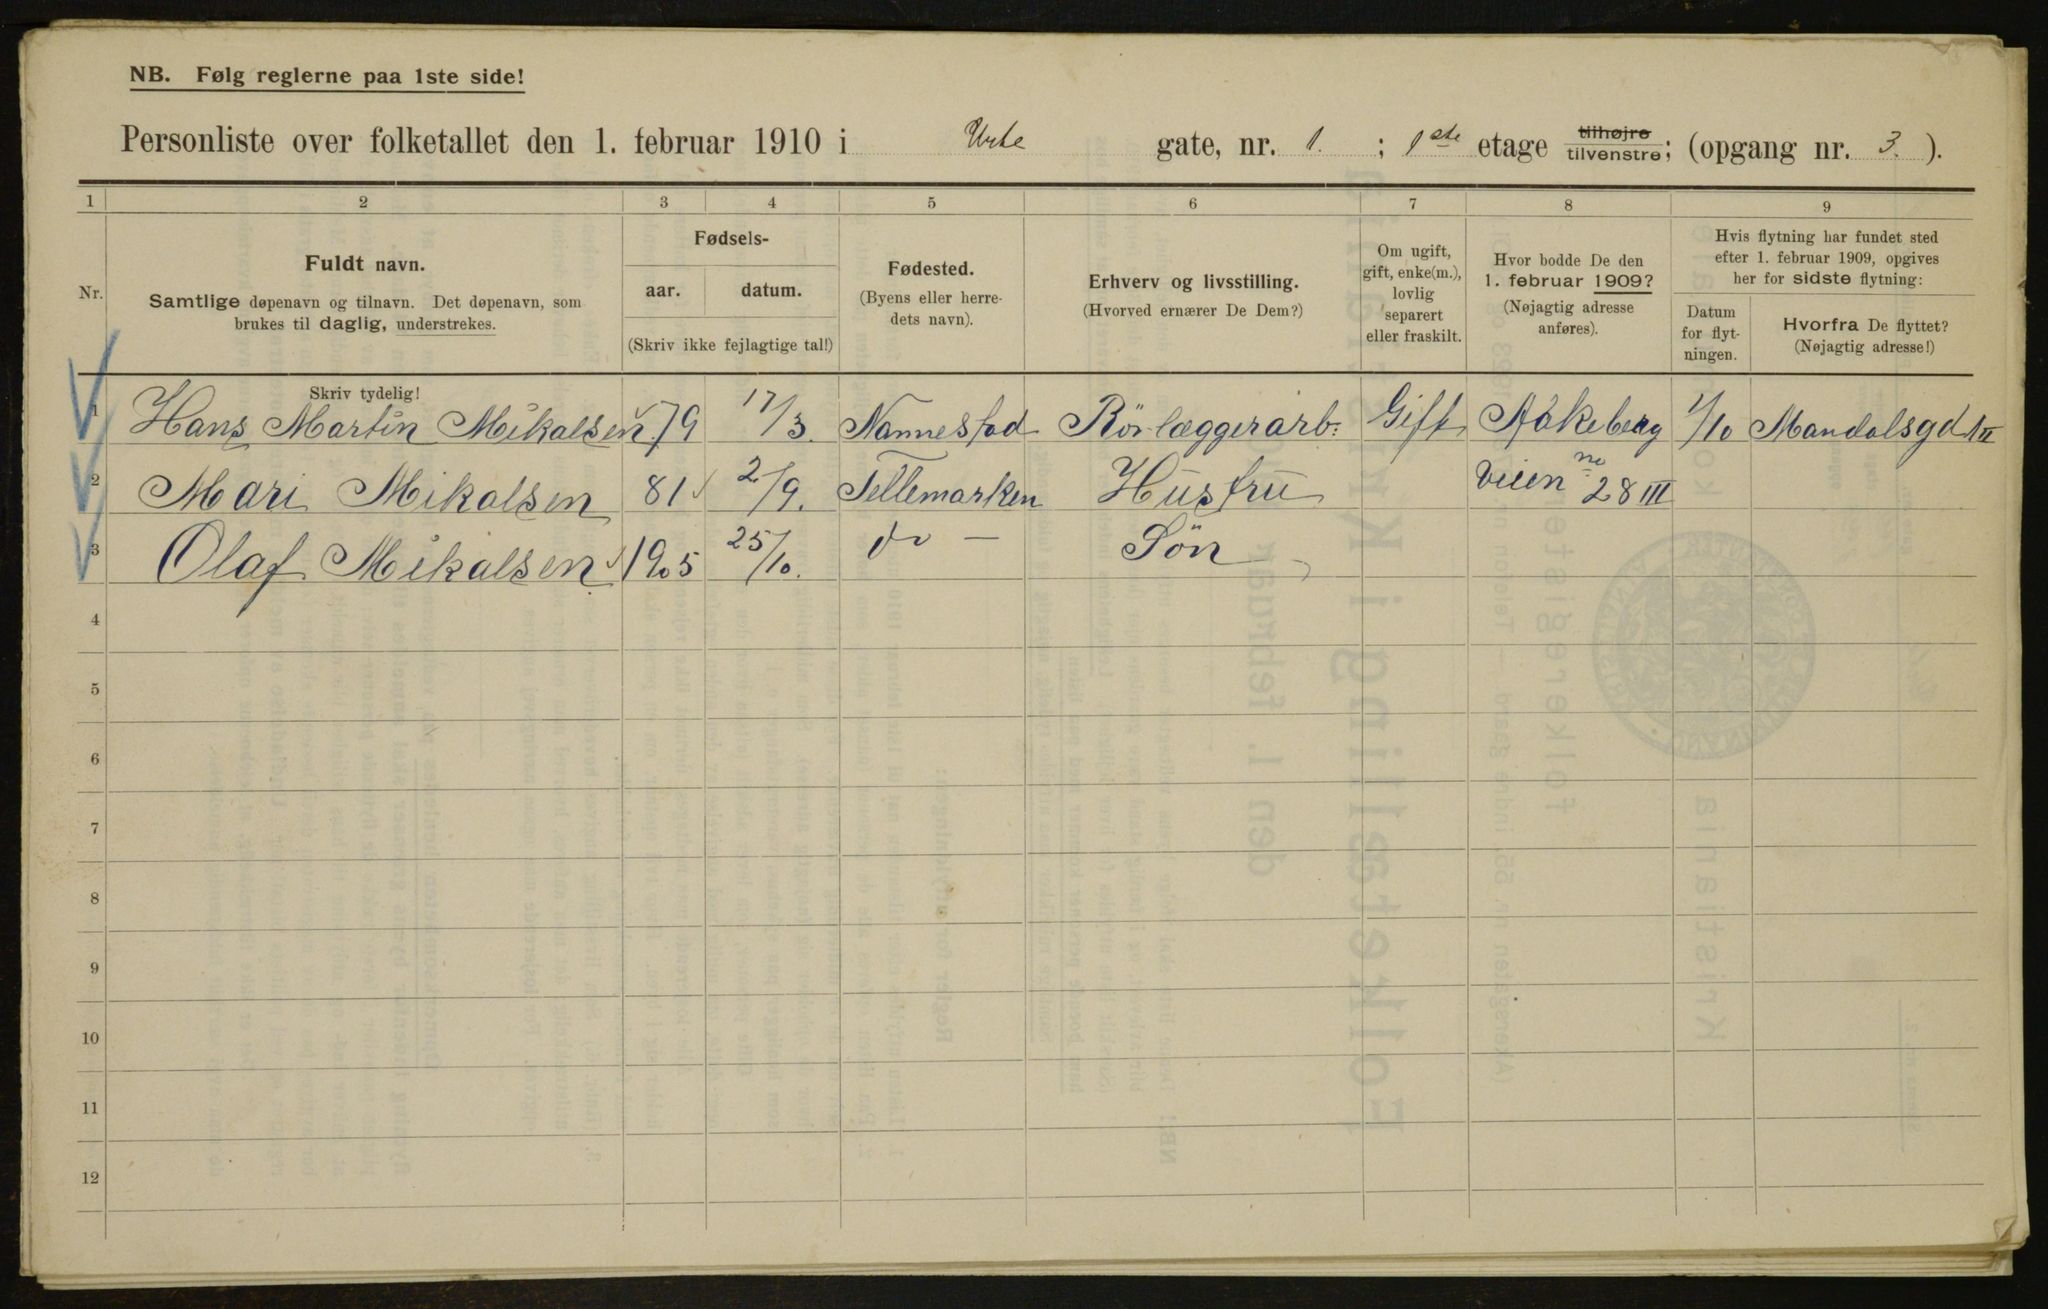 NB. Følg reglerne paa 1ste side!
Personliste over folketallet den 1. februar 1910 i Urte gate, nr. 1. ; 1ste etage tilhøjre tilvenstre; (opgang nr. 3. ).
1 2 3 4 5 6 7 8 9
Nr.
Fuldt navn.
Samtlige døpenavn og tilnavn. Det døpenavn, som
brukes til daglig, understrekes.
Skriv tydelig!
Fødsels-
aar. datum.
(Skriv ikke fejlagtige tal!)
Fødested.
(Byens eller herre-
dets navn).
Erhverv og livsstilling.
(Hvorved ernærer De Dem?)
Om ugift,
gift, enke(m.),
lovlig
separert
eller fraskilt.
Hvor bodde De den
1. februar 1909?
(Nøjagtig adresse
anføres).
Hvis flytning har fundet sted
efter 1. februar 1909, opgives
her for sidste flytning:
Datum
for flyt-
ningen.
Hvorfra De flyttet?
(Nøjagtig adresse!)
1 Hans Martin Mikalsen 79 17/3. Nannestad Rörlæggerarb: Gift Aakeberg 1/10 Mandalsgd 1 II
2 Mari Mikalsen 81 2/9. Tellemarken Hustru veien no 28 III
3 Olaf Mikalsen 1905 25/10. do — Sön
4
5
6
7
8
9
10
11
12